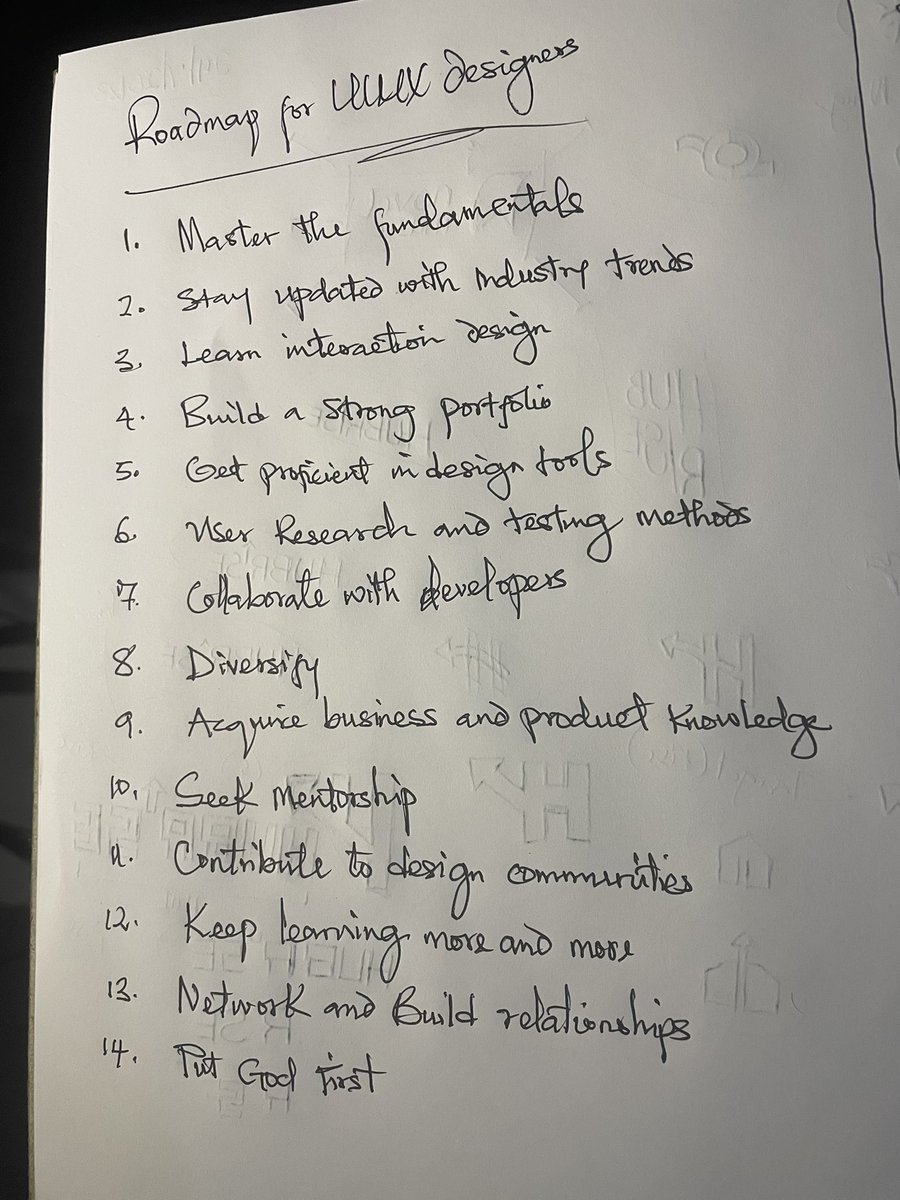 Roadmap for UIUX designers
1. Master the fundamentals
2. Stay updated with industry trends
3. Learn interaction design
4. Build a strong portfolio
5. Get proficient in design tools
6. User Research and testing methods
7. Collaborate with developers
8. Diversify
9. Acquire business and product knowledge
10. Seek mentorship
11. Contribute to design communities
12. Keep learning more and more
13. Network and Build relationships
14. Put God first